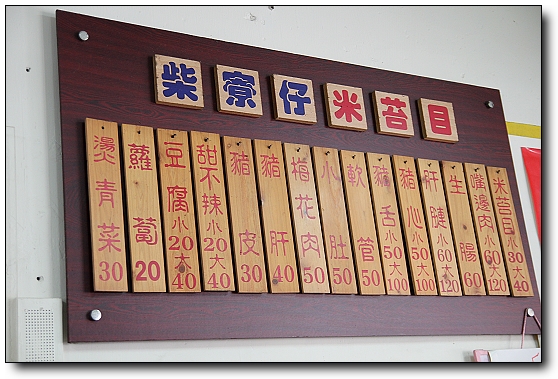 柴寮仔米苔目
米苔目小30大40
嘴邊肉小60大120
生腸60
肝腱小60大120
豬心小50大100
豬舌小50大100
軟管50
小肚50
梅花肉50
豬肝40
豬皮30
甜不辣小20大40
豆腐小20大40
蘿蔔20
燙青菜30